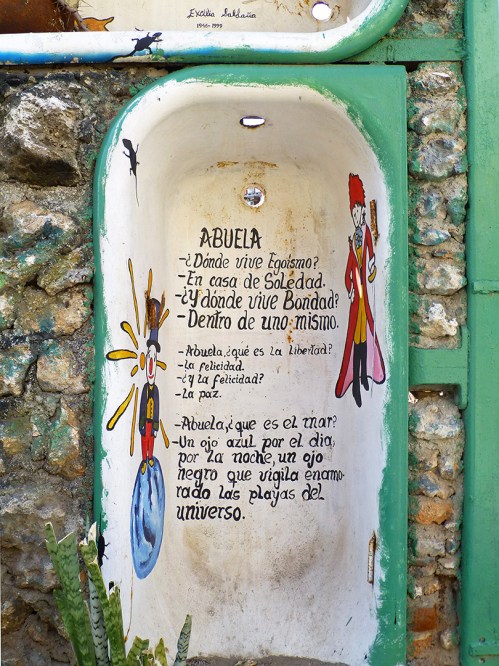 Excilia Saldaña
1946-1999
ABUELA
-¿Dónde vive Egoísmo?
-En casa de Soledad.
-¿Y dónde vive Bondad?
-Dentro de uno mismo.
-Abuela, ¿qué es la libertad?
-La felicidad.
-¿Y la felicidad?
-La paz.
-Abuela, ¿que es el mar?
-Un ojo azul por el dia,
por la noche, un ojo
negro que vigila enamo-
rado las playas del
universo.